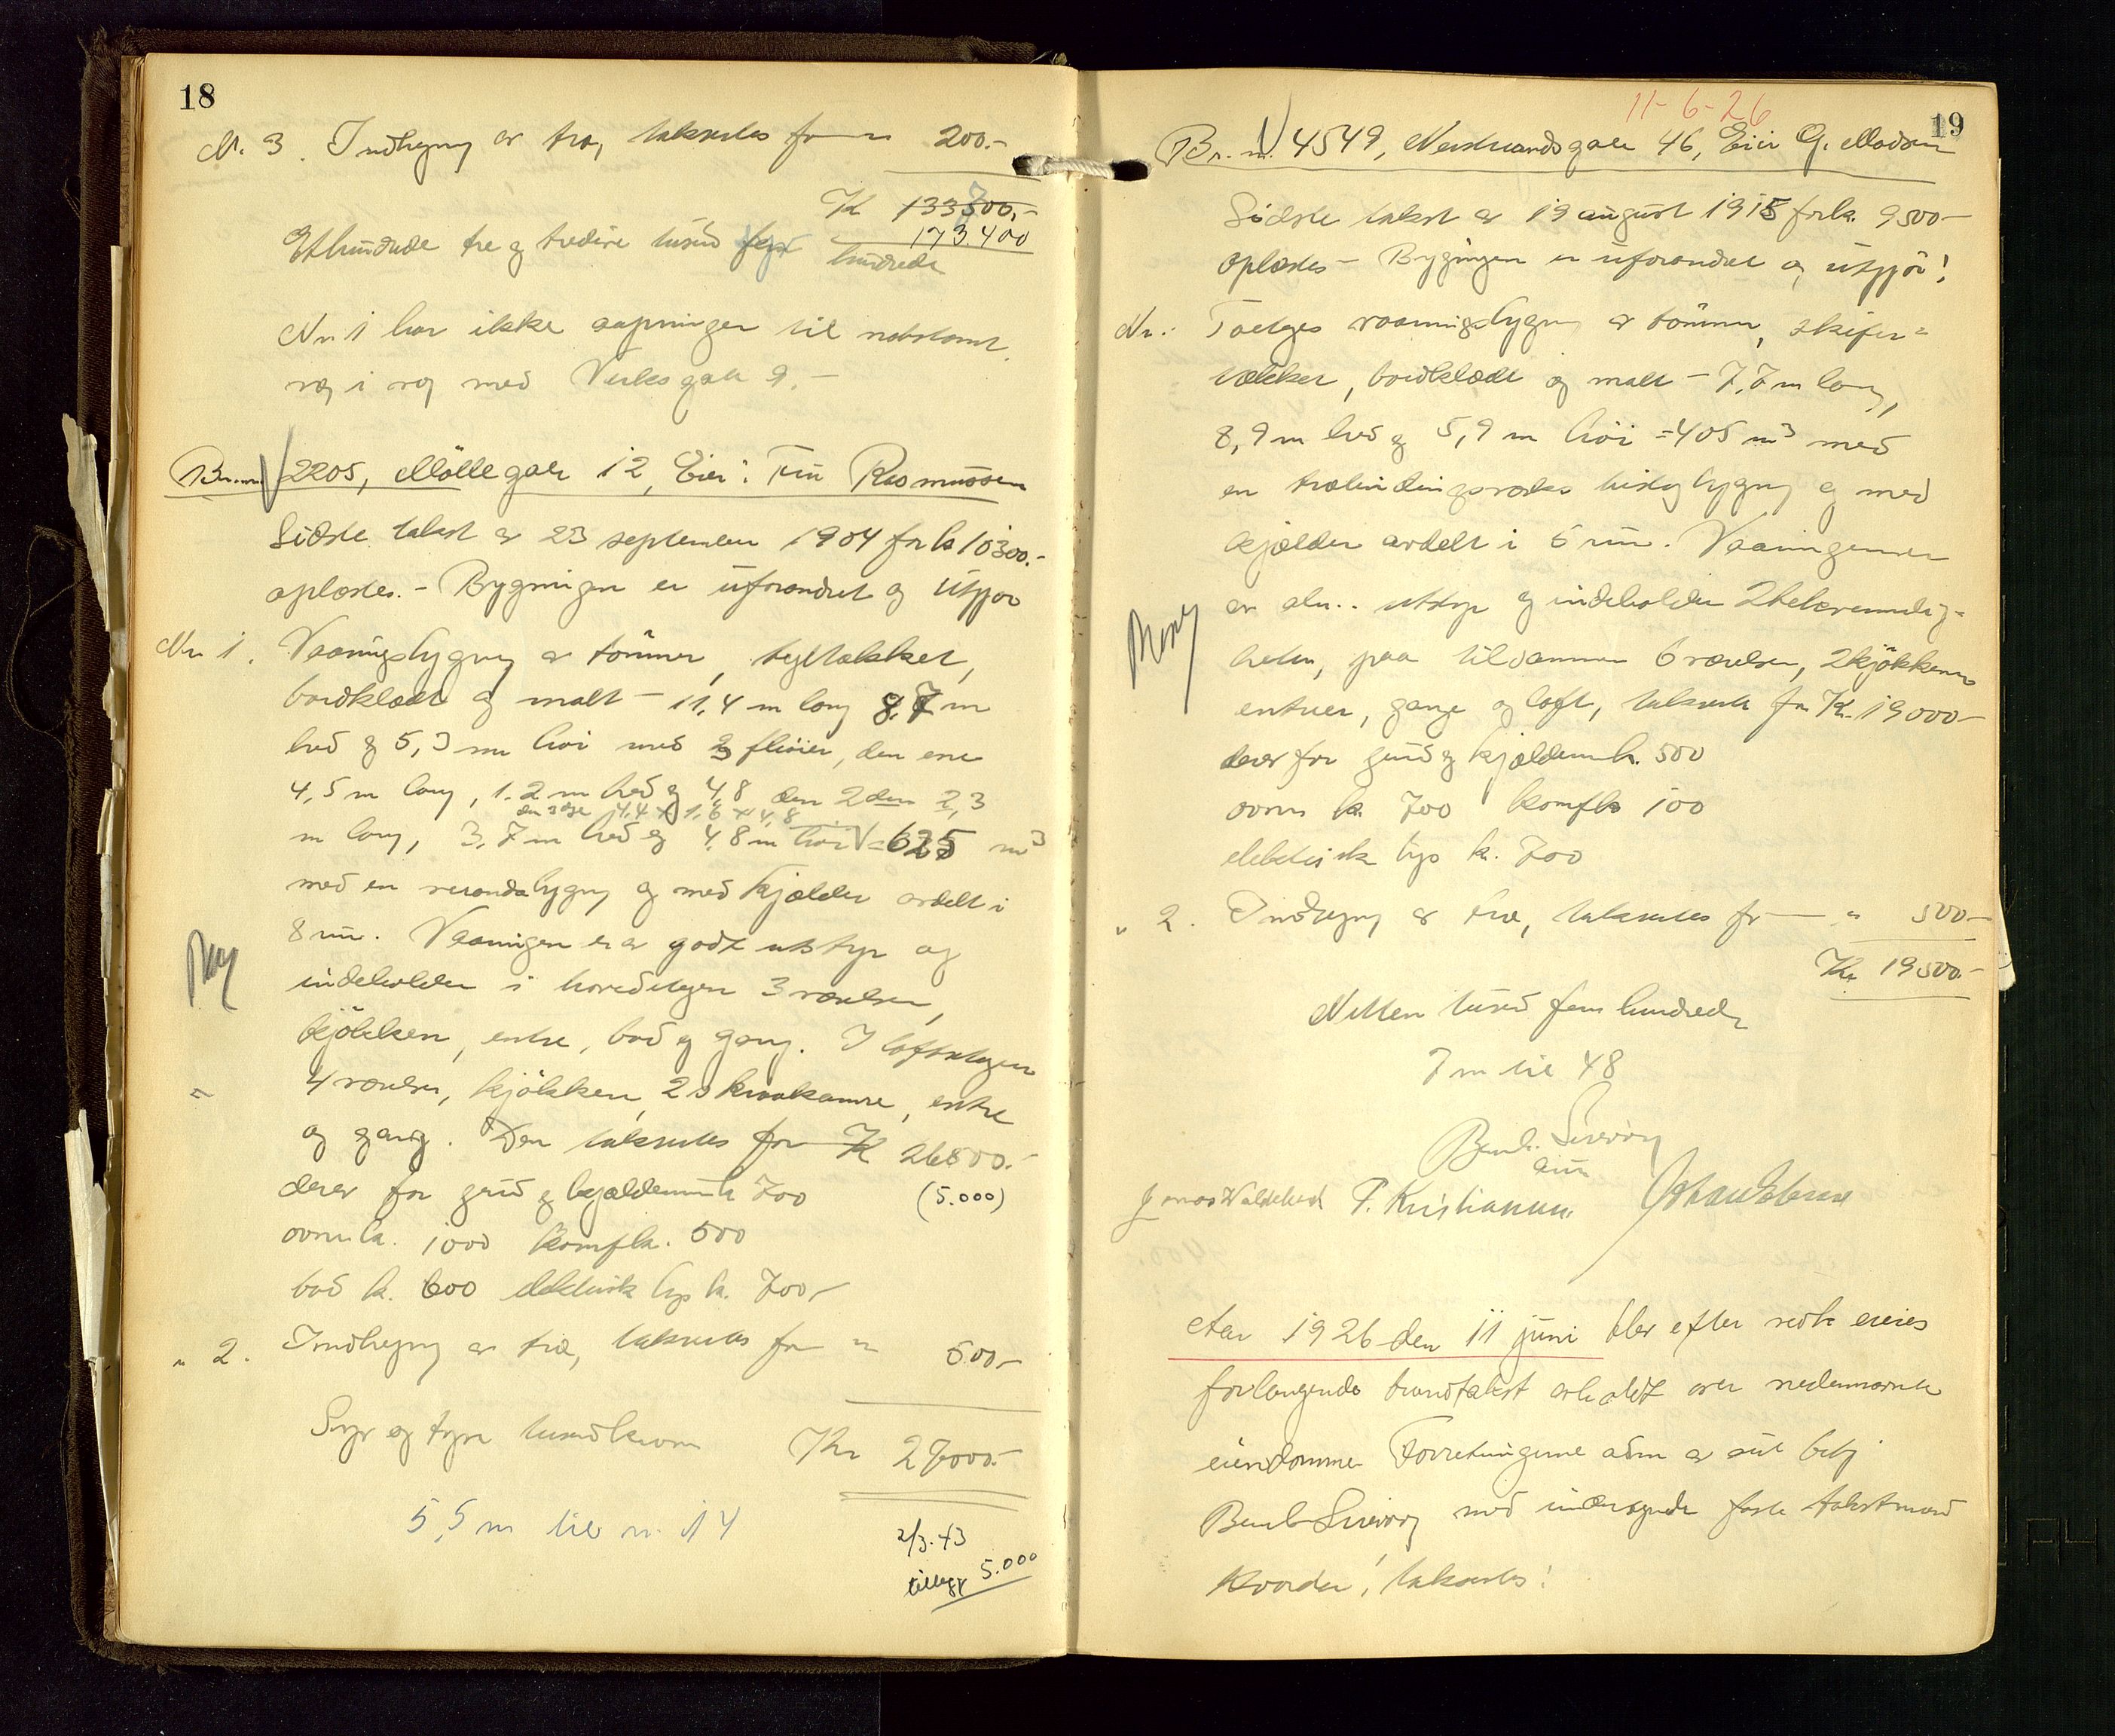 18
Nr. 3. Indhegning av træ, takseres for " 200.-
Kr 133300,-
173.400
Ethundrede tre og tredive tusind
hundrede
Nr 1 har ikke aapninger til nabotomt.
væg i væg med Verksgate 9.-
Br. nr. 2205, Möllegate 12, Eier: Fru Rasmussen
Sidste takst av 23 september 1904 for k 10300.-
oplæstes. - Bygningen er uforandret og utgjør
Nr 1. Vaaningsbygning av tømmer, tegltækket,
bordklædt og malt - 11,4 m lang 8,7 m
bred og 5,3 m høi med 3 fløier, den ene
4,5 m lang, 1.2 m bred og 4,8 den 2den 2,3
den 3dje 4,4 x 1,6 x 4,8
m lang, 3,7 m bred og 4,8 m høi = 625 m3
med en verandabygning og med kjælder avdelt i
8 rum. Vaaningen er av godt utstyr og
indeholder i hovedetagen 3 værelser,
kjøkken, entre, bad og gang. I loftsetagen
4 værelser, kjøkken, 2 skraakamre, entre
og gang. Den takseres for Kr 26500.-
derav for grund og kjældermur k 700 (5.000)
ovner k. 1000 komfk. 500
bad k. 600 elektrisk lys k. 700,-
" 2. Indhegning av træ, takseres for " 500,-
Syv og tyve tusind kroner Kr 27000.-
5,5 m til nr. 14
2/3.43
tillegg 5.000
11-6-26
19
Br. nr. 4549, Nedstrandsgate 46, Eier G. Madsen
Sidste takst av 19 august 1915 for k. 9500-
oplæstes - Bygningen er uforandret og utgjør!
Nr. 1 Toetages vaaningsbygning av tømmer, skifer-
tækket, bordklædt og malt - 7,7 m lang,
8,9 m bred og 5,9 m høi = 405 m3 med
en træbeklædningsværks bislagbygning og med
kjælder avdelt i 6 rum. Vaaningerne
er alm. utstyr og indeholder 2 beboernelig-
heter, paa tilsammen 6 værelser, 2 kjøkkener
entreer, gange og loft, takseres for Kr. 19000-
derav for grund og kjældermur k. 500
ovner k. 700 komfk 100
elektrisk lys k. 700
" 2. Indhegning av træ, takseres for " 500-
Kr 19500.-
Nitten tusind fem hundrede
7 m til 48
Bernh. Sivesøn
Jonas Waldeland P. Kristiansen
Aar 1926 den 11 juni blev efter vedk eieres
forlangende brandtakst avholdt over nedennævnte
eiendomme. Forretningerne adm av sut betj
Bernh Sivesøn med undertegnede faste takstmænd
Hvorda! takseres!